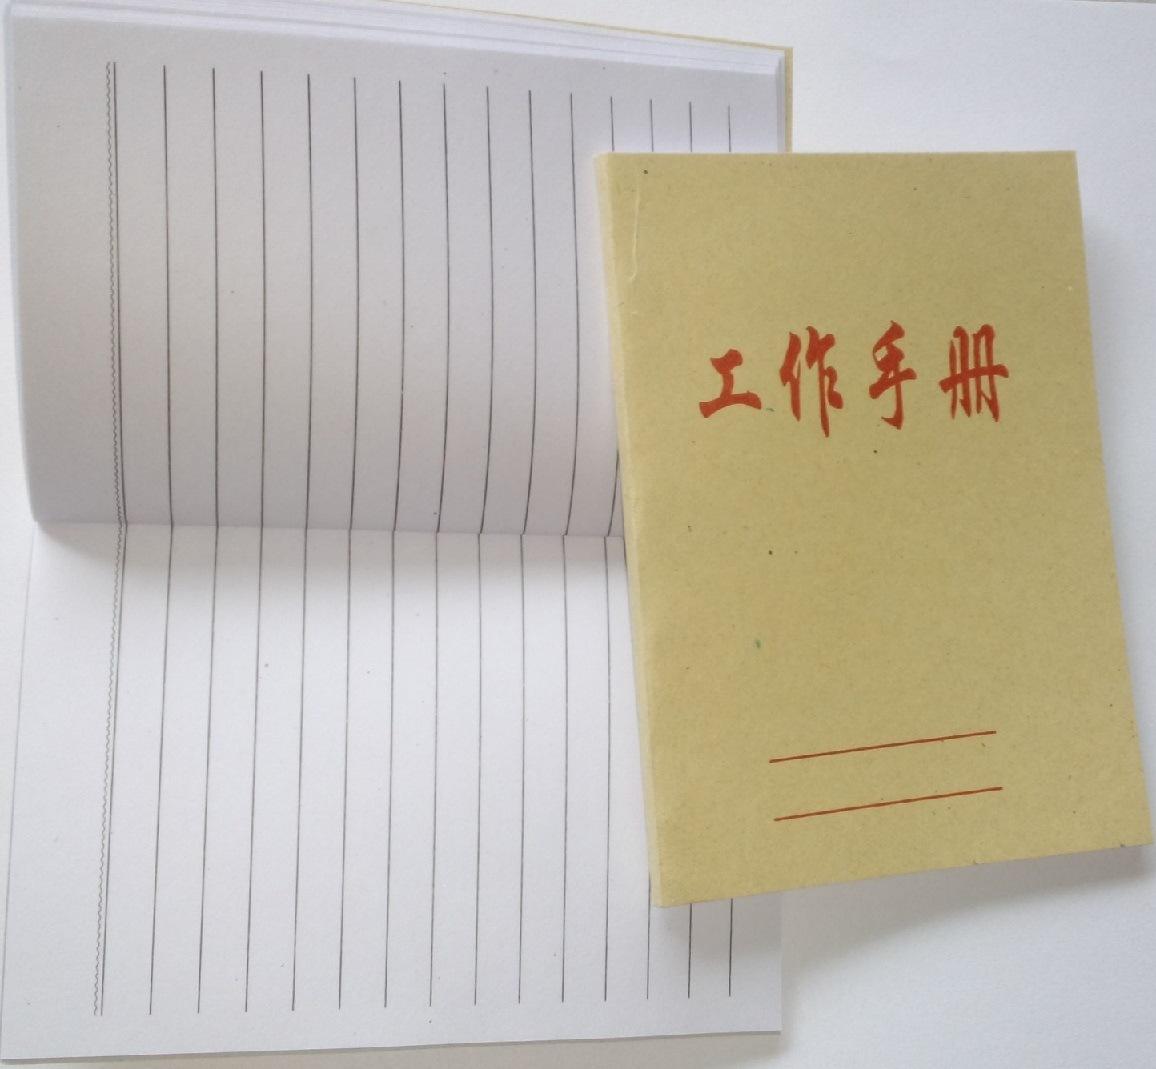 工作手册